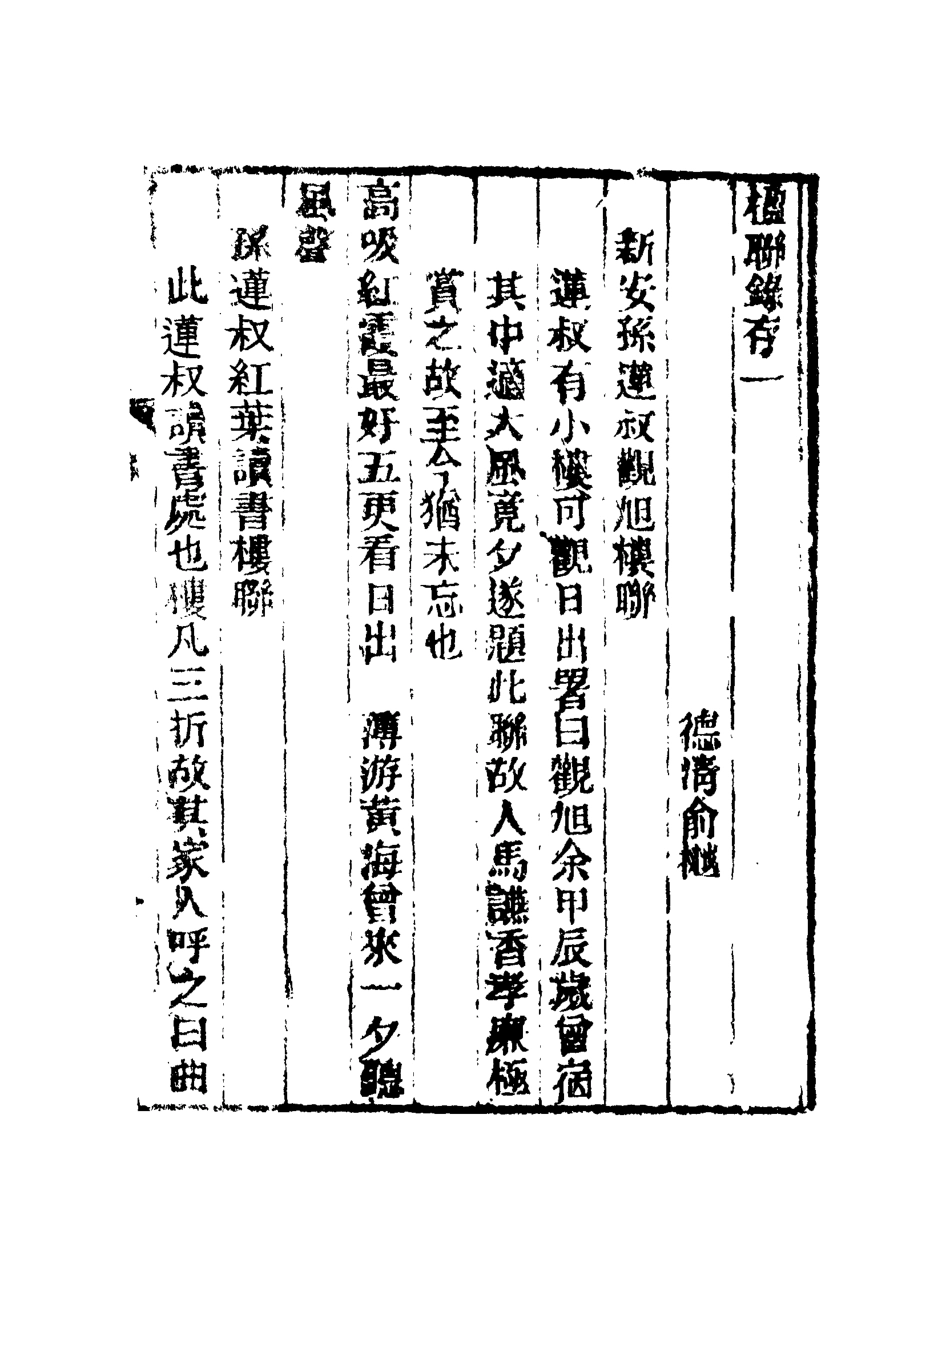 楹聯錄存一
德清俞樾
新安孫蓮叔觀旭樓聯
蓮叔有小樓可觀日出署曰觀旭余甲辰歲曾宿
其中適大風竟夕遂題此聯故人馬讌香孝廉極
賞之故至今猶未忘也
高吸紅霞最好五更看日出　薄游黃海曾來一夕聽
風聲
孫蓮叔紅葉讀書樓聯
此蓮叔讀書處也樓凡三折故其家人呼之曰曲